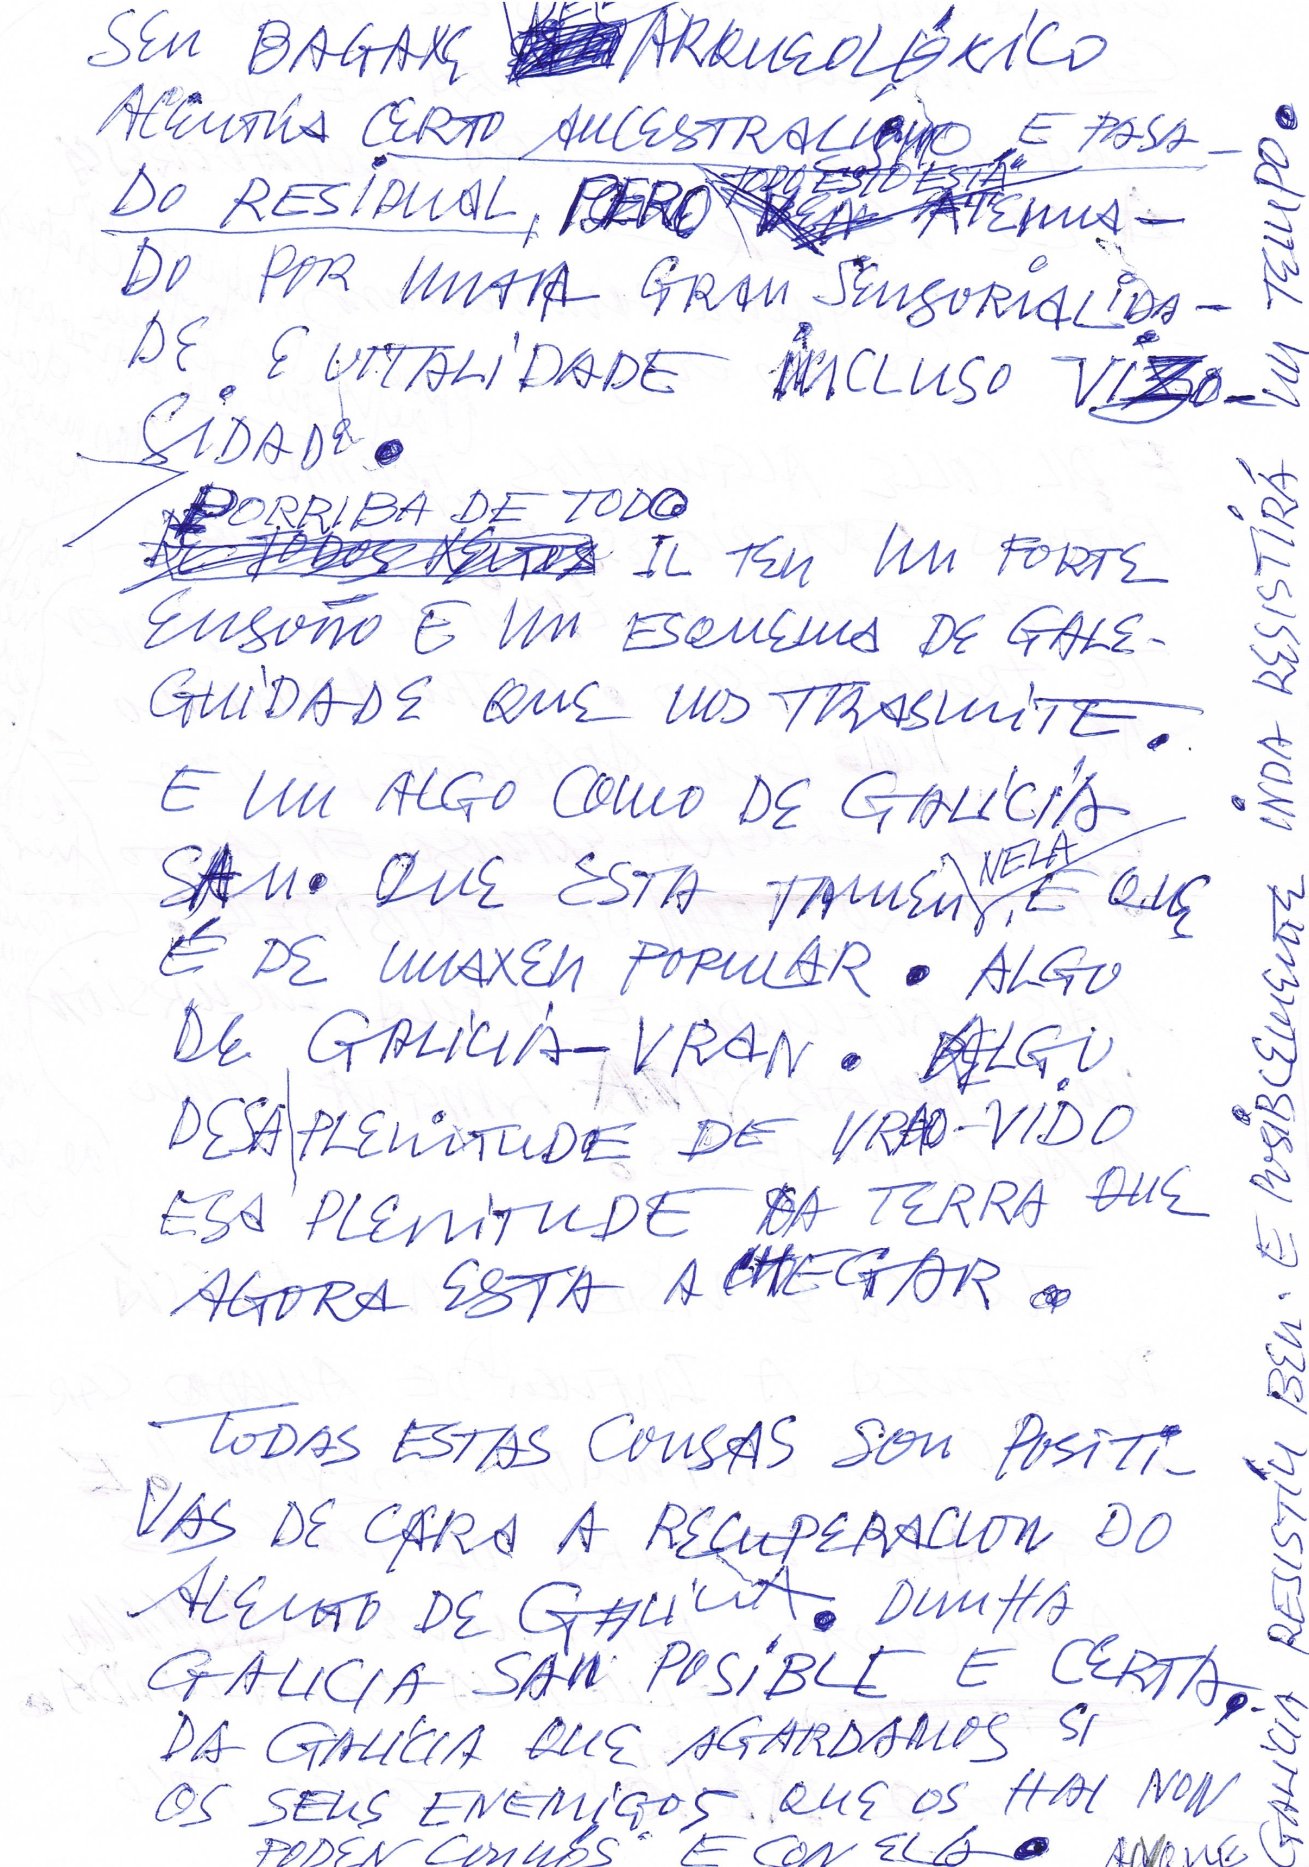 SEU BAGAXE ARQUEOLÓXICO
ALENTÍA CERTO ANCESTRALISMO E PASA-
DO RESIDUAL, PERO "TODO ESTO ESTÁ" ATENUA-
DO POR UNHA GRAN SENSORIALIDA-
DE E VITALIDADE INCLUSO VIZO-
SIDADE.
PORRIBA DE TODO
IL TEN UN FORTE
ENSOÑO E UN ESQUEMA DE GALE-
GUIDADE QUE NOS TRASMITE.
E UN ALGO COMO DE GALICIA
SAN. QUE ESTA TAMEN NELA, E QUE
É DE UMAXEN POPULAR. ALGO
DE GALICIA-VRAN. ALGO
DESA PLENITUDE DE VRAO-VIDO
ESA PLENITUDE DA TERRA QUE
AGORA ESTA A CHEGAR.
TODAS ESTAS COUSAS SON POSITI-
VAS DE CARA A RECUPERACION DO
ALENTO DE GALICIA. DUNHA
GALICIA SAN POSIBLE E CERTA.
DA GALICIA QUE AGARDAMOS SI
OS SEUS ENEMIGOS QUE OS HAI NON
PODEN CONNÓS E CON ELA. ANQUE
GALICIA RESISTÍU BEN. E POSIBLEMENTE INDA RESISTIRÁ UN TEMPO.